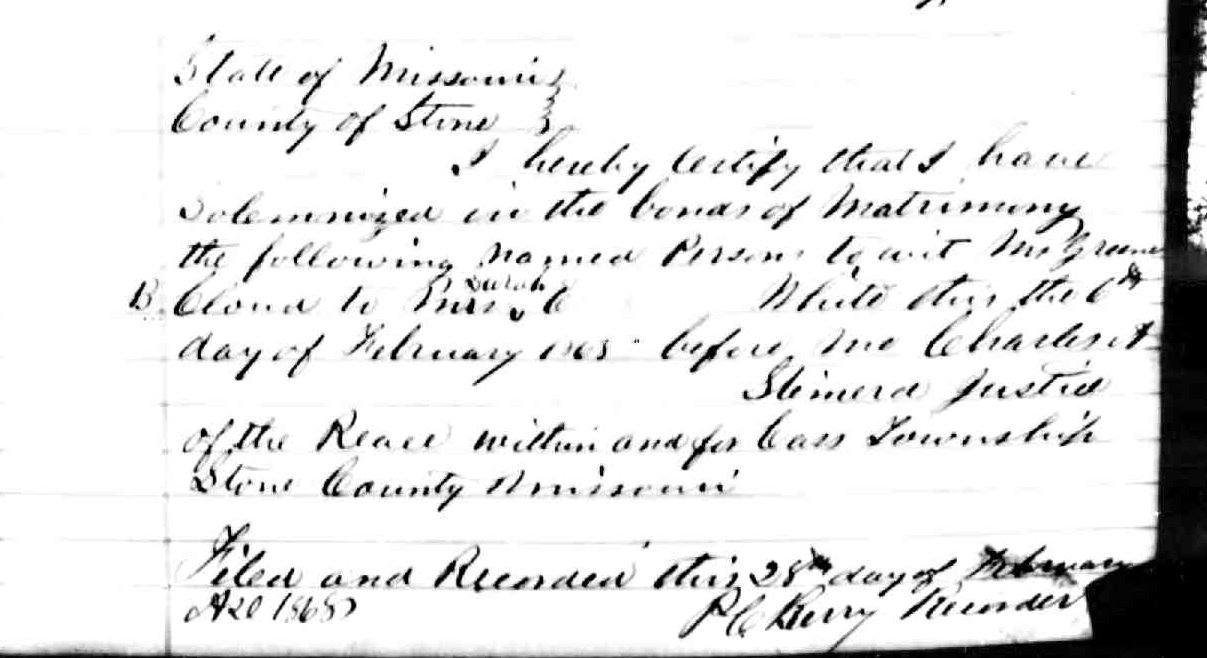 State of Missouri
County of Stone
I hereby Certify that I have
Solemnized in the bonds of Matrimony
the following named Persons to wit Mr Greene
B. Cloud to Mrs Sarah C White this the 6th
day of February 1868 before me Charles A
Stimerd Justice
of the Peace within and for Cass Township
Stone County Missouri
Filed and Recorded this 28th day of February
AD 1868
P C Berry Recorder